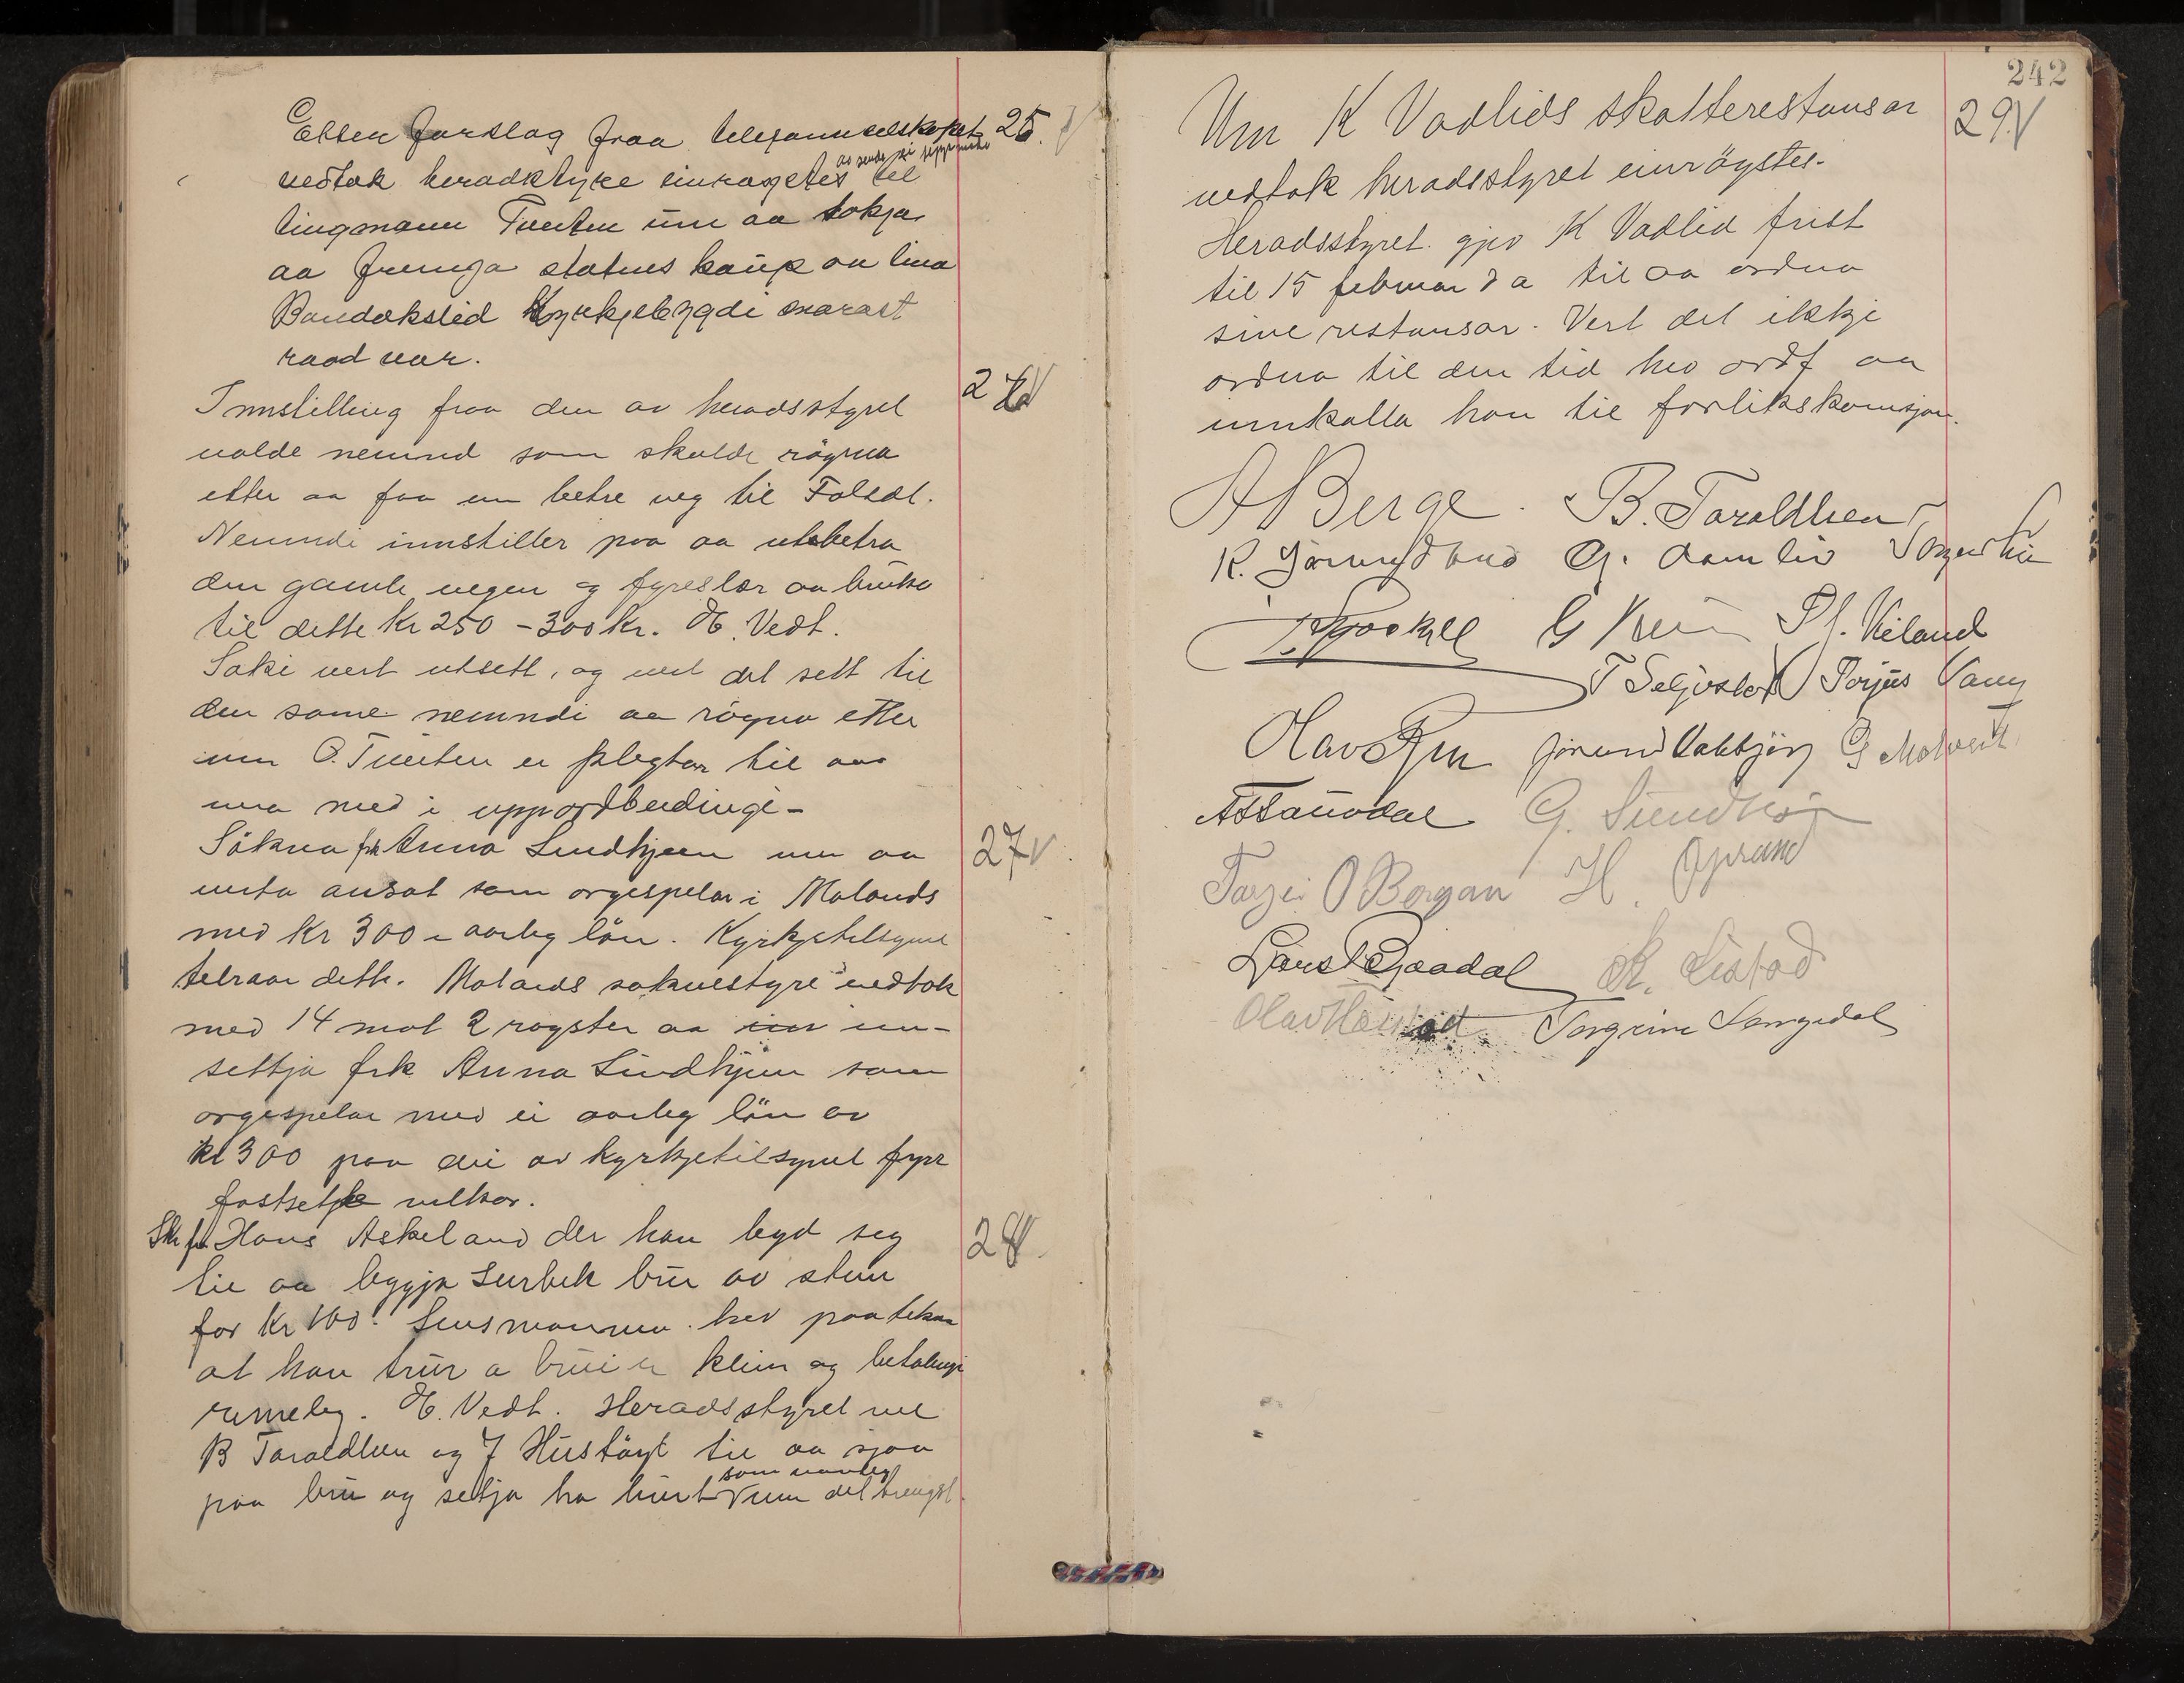 Etter forslag fraa telefonnselskapet 25.
vedtok heradstyre einrøgstes av senda ei til
tingmann Tveiten um aa søkja
aa fremja statens kaup av lina
Bandakslid Kyrkjebygdi snarast
raad var.
Innstilling fraa den av heradsstyret 26
valde nemnd som skulde røgna
etter aa faa ein betre veg til Faldal.
Nemndi innstiller paa aa utbetra
den gamle vegen og fyreslær aa bruka
til dette Kr 250 – 300 kr. H. Vedt.
Saki vert utsett, og vert det sett til
den same nemndi aa røgna etter
um O. Tveiten er plegtar til aa
vera med i upparbeidingi –
Søkna frk Anna Lindhjem um aa 27
verta ansat som orgespelar i Molands
med kr 300 – aarleg løn. Kyrkjetilsynet
tilraar dette. Molands soknestyre vedtok
med 14 mot 2 røyster aa inn-
settja frk Anna Lindhjem som
orgespelar med ei aarleg løn av
kr 300 paa dei av kyrkjetilsynet fyrr
fastsette vilkor.
Skr fr Hans Askeland der han byd seg 28
til aa byggja Surbek bru av stein
for Kr 100. Lensmannen hev paatekna
at han trur a brui er klein og betalingi
rimeleg. H. Vedt. Heradsstyret vel
B Taraldlien og J Hustøyt til aa sjaa
som vanleg
paa bru og setja ho burt um det trengst
242
Um K Vadlids skatterestansar 29
vedtok heradsstyret einrøystes.
Heradsstyret gjev K Vadlid frist
til 15 februar d a til aa ordna
sine restansar. Vert det ikkje
ordna til den tid hev ordf aa
innkalla han til forlikskomsjon.
A Berge. B. Taraldlien
K. Jørundland G. Aamlid
G Kvi Veland
T Seljeslot Torjus Vaag
Olav Rui Jørund Vabbjørg G Molvert
A Haugdal G. Sundbø
Targei O Bergan H. Opsand
Lars T Gaadal K. Listad
Olav Torgrim Langedal